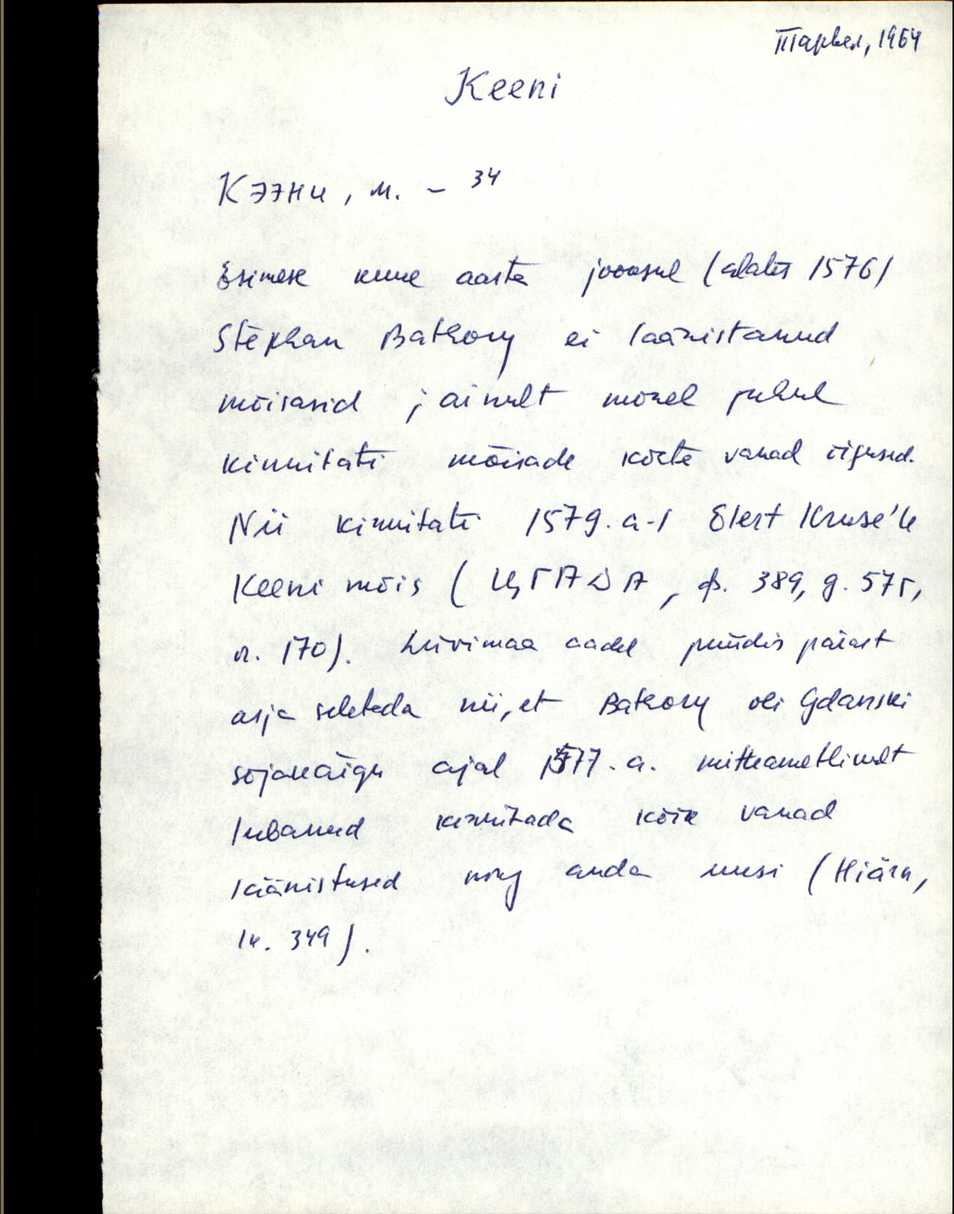 Тарвел, 1964
Keeni
Кээни, м. – 34
Esimese kuue aasta jooksul (alates 1576)
Stephan Bathory ei läänistanud
mõisasid, ainult mõnel puhul
kinnitati mõisade kohta vanad õigused.
Nii kinnitati 1579. a-l Elert Kruse'le
Keeni mõis (ЦГАДА, ф. 389, д. 575,
л. 170). Liivimaa aadel püüdis pärast
asja seletada nii, et Bathory oli Gdanski
sõjakäigu ajal 1577. a. mitteametlikult
lubanud kinnitada kõik vanad
läänistused ning anda uusi (Hiärn,
lk. 349).